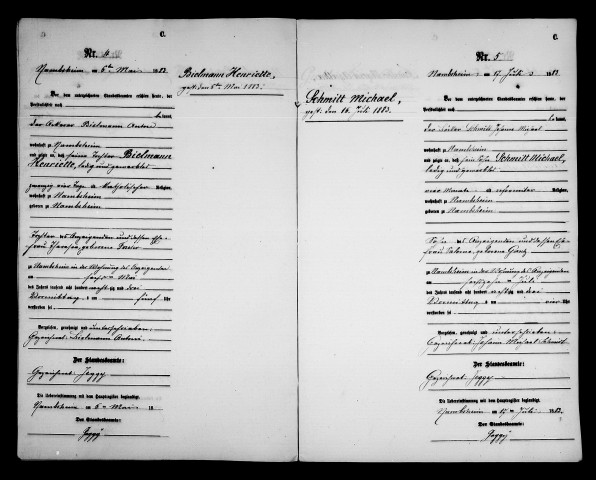 C.
Nr. 4
Nambsheim am 6ten Mai 1883
Vor dem unterzeichneten Standesbeamten erschien heute, der
Persönlichkeit nach
kannt,
der Ackerer Bielmann Anton
wohnhaft zu Nambsheim
und zeigte an, daß seine Tochter Bielmann
Henriette, ledig und gewerblos
zwanzig vier Tage alt, katholischer Religion,
wohnhaft zu Nambsheim
geboren zu Nambsheim
Tochter des Anzeigenden und dessen Ehe-
frau Theresia, geborene
zu Nambsheim in der Wohnung des Anzeigenden
am Mai
des Jahres tausend acht hundert achtzig und drei
Vormittags um fünf Uhr
verstorben sei
Vorgelesen, genehmigt und unterschrieben:
Gezeichnet: Bielmann Anton.
Der Standesbeamte:
Gezeichnet: Jeggy
Die Uebereinstimmung mit dem Hauptregister beglaubigt.
Nambsheim am 6ten Mai 18
Der Standesbeamte:
Jeggy
Bielmann Henriette,
gest. den 5ten Mai 1883.
Schmitt Michael,
gest. den 16. Juli 1883.
C.
Nr. 5
Nambsheim am 17. Juli 1883.
Vor dem unterzeichneten Standesbeamten erschien heute, der
Persönlichkeit nach
kannt,
der Schmitt Johann Michael
wohnhaft zu Nambsheim
und zeigte an, daß sein Sohn Schmitt Michael,
ledig und gewerblos
vier Monate alt, reformirter Religion,
wohnhaft zu Nambsheim
geboren zu Nambsheim
Sohn des Anzeigenden und dessen Ehe-
frau Salomea, geborene
zu Nambsheim in der Wohnung des Anzeigenden
am sechszehnten Juli
des Jahres tausend acht hundert achtzig und drei
Vormittags um vier Uhr
verstorben sei
Vorgelesen, genehmigt und unterschrieben:
Gezeichnet: Johann Michael Schmitt
Der Standesbeamte:
Gezeichnet: Jeggy
Die Uebereinstimmung mit dem Hauptregister beglaubigt.
Nambsheim am 17ten Juli 1883.
Der Standesbeamte:
Jeggy